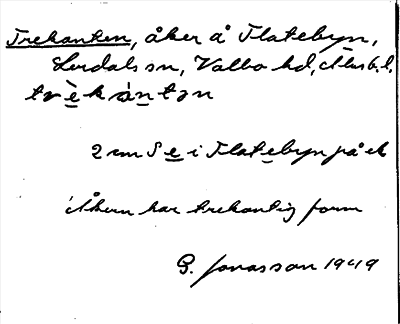 Trekanten, åker å Flatebyn,
Lerdals sn, Valbo hd, Älvsb. l.
trè̱kàṉtən
2 cm S e̱ i Flatebyn på ek
Åkern har trekantig form
G. Jonasson 1949